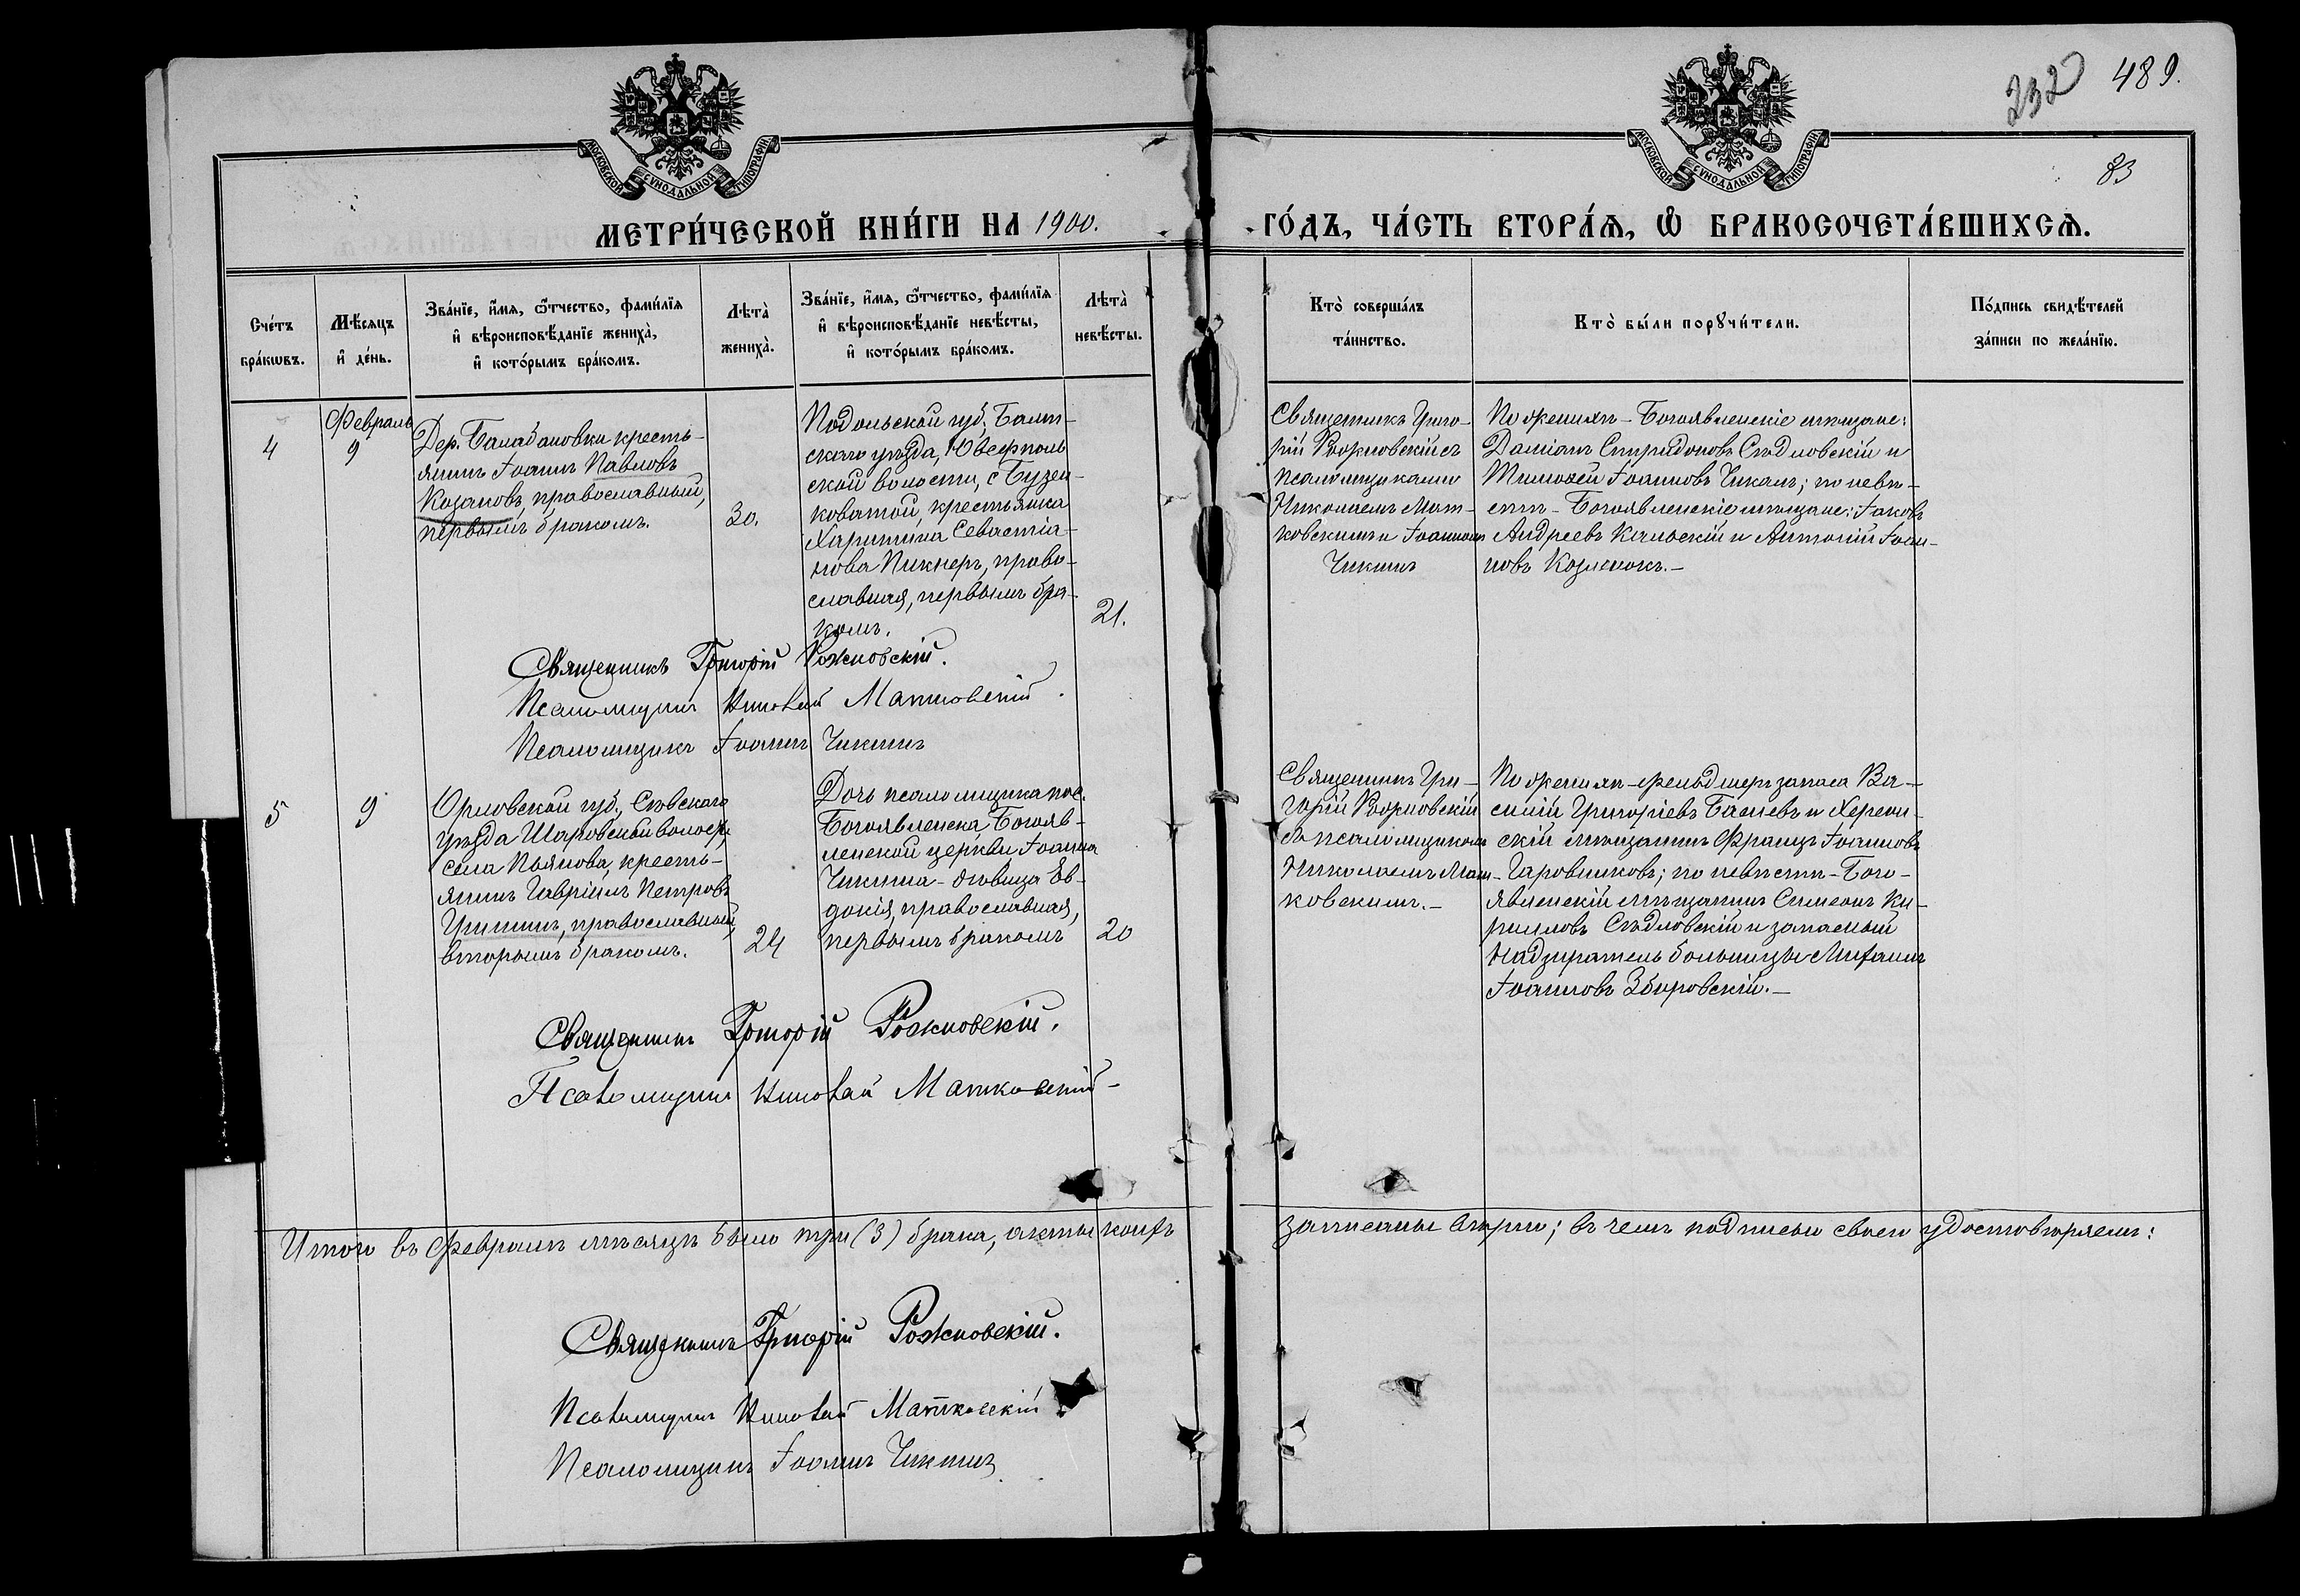 232 489.
83
МОСКОВСКОЙ СУНОДАЛЬНОЙ ТИПОГРАФІИ
МОСКОВСКОЙ СУНОДАЛЬНОЙ ТИПОГРАФІИ
МЕТРИ́ЧЕСКОЙ КНИ́ГИ НА 1900. ГО́ДЪ, ЧА́СТЬ ВТОРА́Ѧ, Ѡ҆ БРАКОСОЧЕТА́ВШИХСѦ.
Сче́тъ
бра́кѡвъ.
Мѣ́сяцъ
и҆ де́нь.
Зва́нїе, и҆́мя, ѻ҆́тчество, фами́лїя
и҆ вѣроисповѣ́данїе жениха̀,
и҆ кото́рымъ бра́комъ.
Лѣта̀
жениха̀.
Зва́нїе, и҆́мя, ѻ҆́тчество, фами́лїя
и҆ вѣроисповѣ́данїе невѣ́сты,
и҆ кото́рымъ бра́комъ.
Лѣта̀
невѣ́сты.
Кто̀ соверша́лъ
та́инство.
Кто̀ бы́ли порꙋчи́тели.
По́дпись свидѣ́телей
за́писи по жела́нїю.
4
Февраль
9
Дер. Балабановки кресть-
янинъ Іоаннъ Павловъ
Козаковъ, православный,
первымъ бракомъ.
30.
Подольской губ., Балт-
скаго уѣзда, Юзефполь
ской волости, с. Бузни-
коватой, крестьянка
Харитина Севастіа-
нова Пикнеръ, право-
славная, первымъ бра-
комъ.
21.
Священникъ Григо-
рій Рожновскій съ
псаломщиками
Николаемъ Мат-
ковскимъ и Іоанномъ
Чикинъ
По женихѣ - Богоявленскіе мѣщане:
Даміанъ Спиридоновъ Сѣдловскій и
Тимоѳей Іоанновъ Чикалъ; по невѣ-
стѣ - Богоявленскіе мѣщане: Іаковъ
Андреевъ Кальскій и Антоній Іоан-
новъ Козленокъ. -
Священникъ Григорій Рожновскій.
Псаломщикъ Николай Матковскій.
Псаломщикъ Іоаннъ Чикинъ
5
9
Орловской губ., Сѣвскаго
уѣзда Шаровской волости,
села Пьянова, кресть-
янинъ Гавріилъ Петровъ
православный,
вторымъ бракомъ.
24
Дочь псаломщика пос.
Богоявленска, Богояв-
ленской церкви Іоанна
Чикина - дѣвица Ев-
докія, православная,
первымъ бракомъ
20
Священникъ Гри-
горій Рожновскій
съ псаломщикомъ
Николаемъ Мат-
ковскимъ. -
По женихѣ - фельдшеръ запаса Ва-
силій Григоріевъ Басневъ и Херсон-
скій мѣщанинъ Францъ Іоанновъ
Гаровниковъ; по невѣстѣ - Бого-
явленскій мѣщанинъ Симеонъ Ки-
рилловъ Сѣдловскій и запасный
надзиратель больницы Михаилъ
Іоанновъ Збировскій. -
Священникъ Григорій Рожновскій.
Псаломщикъ Николай Матковскій -
Итого въ Февралѣ мѣсяцѣ было три (3) брака, акты коихъ записаны вѣрно; въ чемъ подписью своею удостовѣряемъ:
Священникъ Григорій Рожновскій.
Псаломщикъ Николай Матковскій
Псаломщикъ Іоаннъ Чикинъ